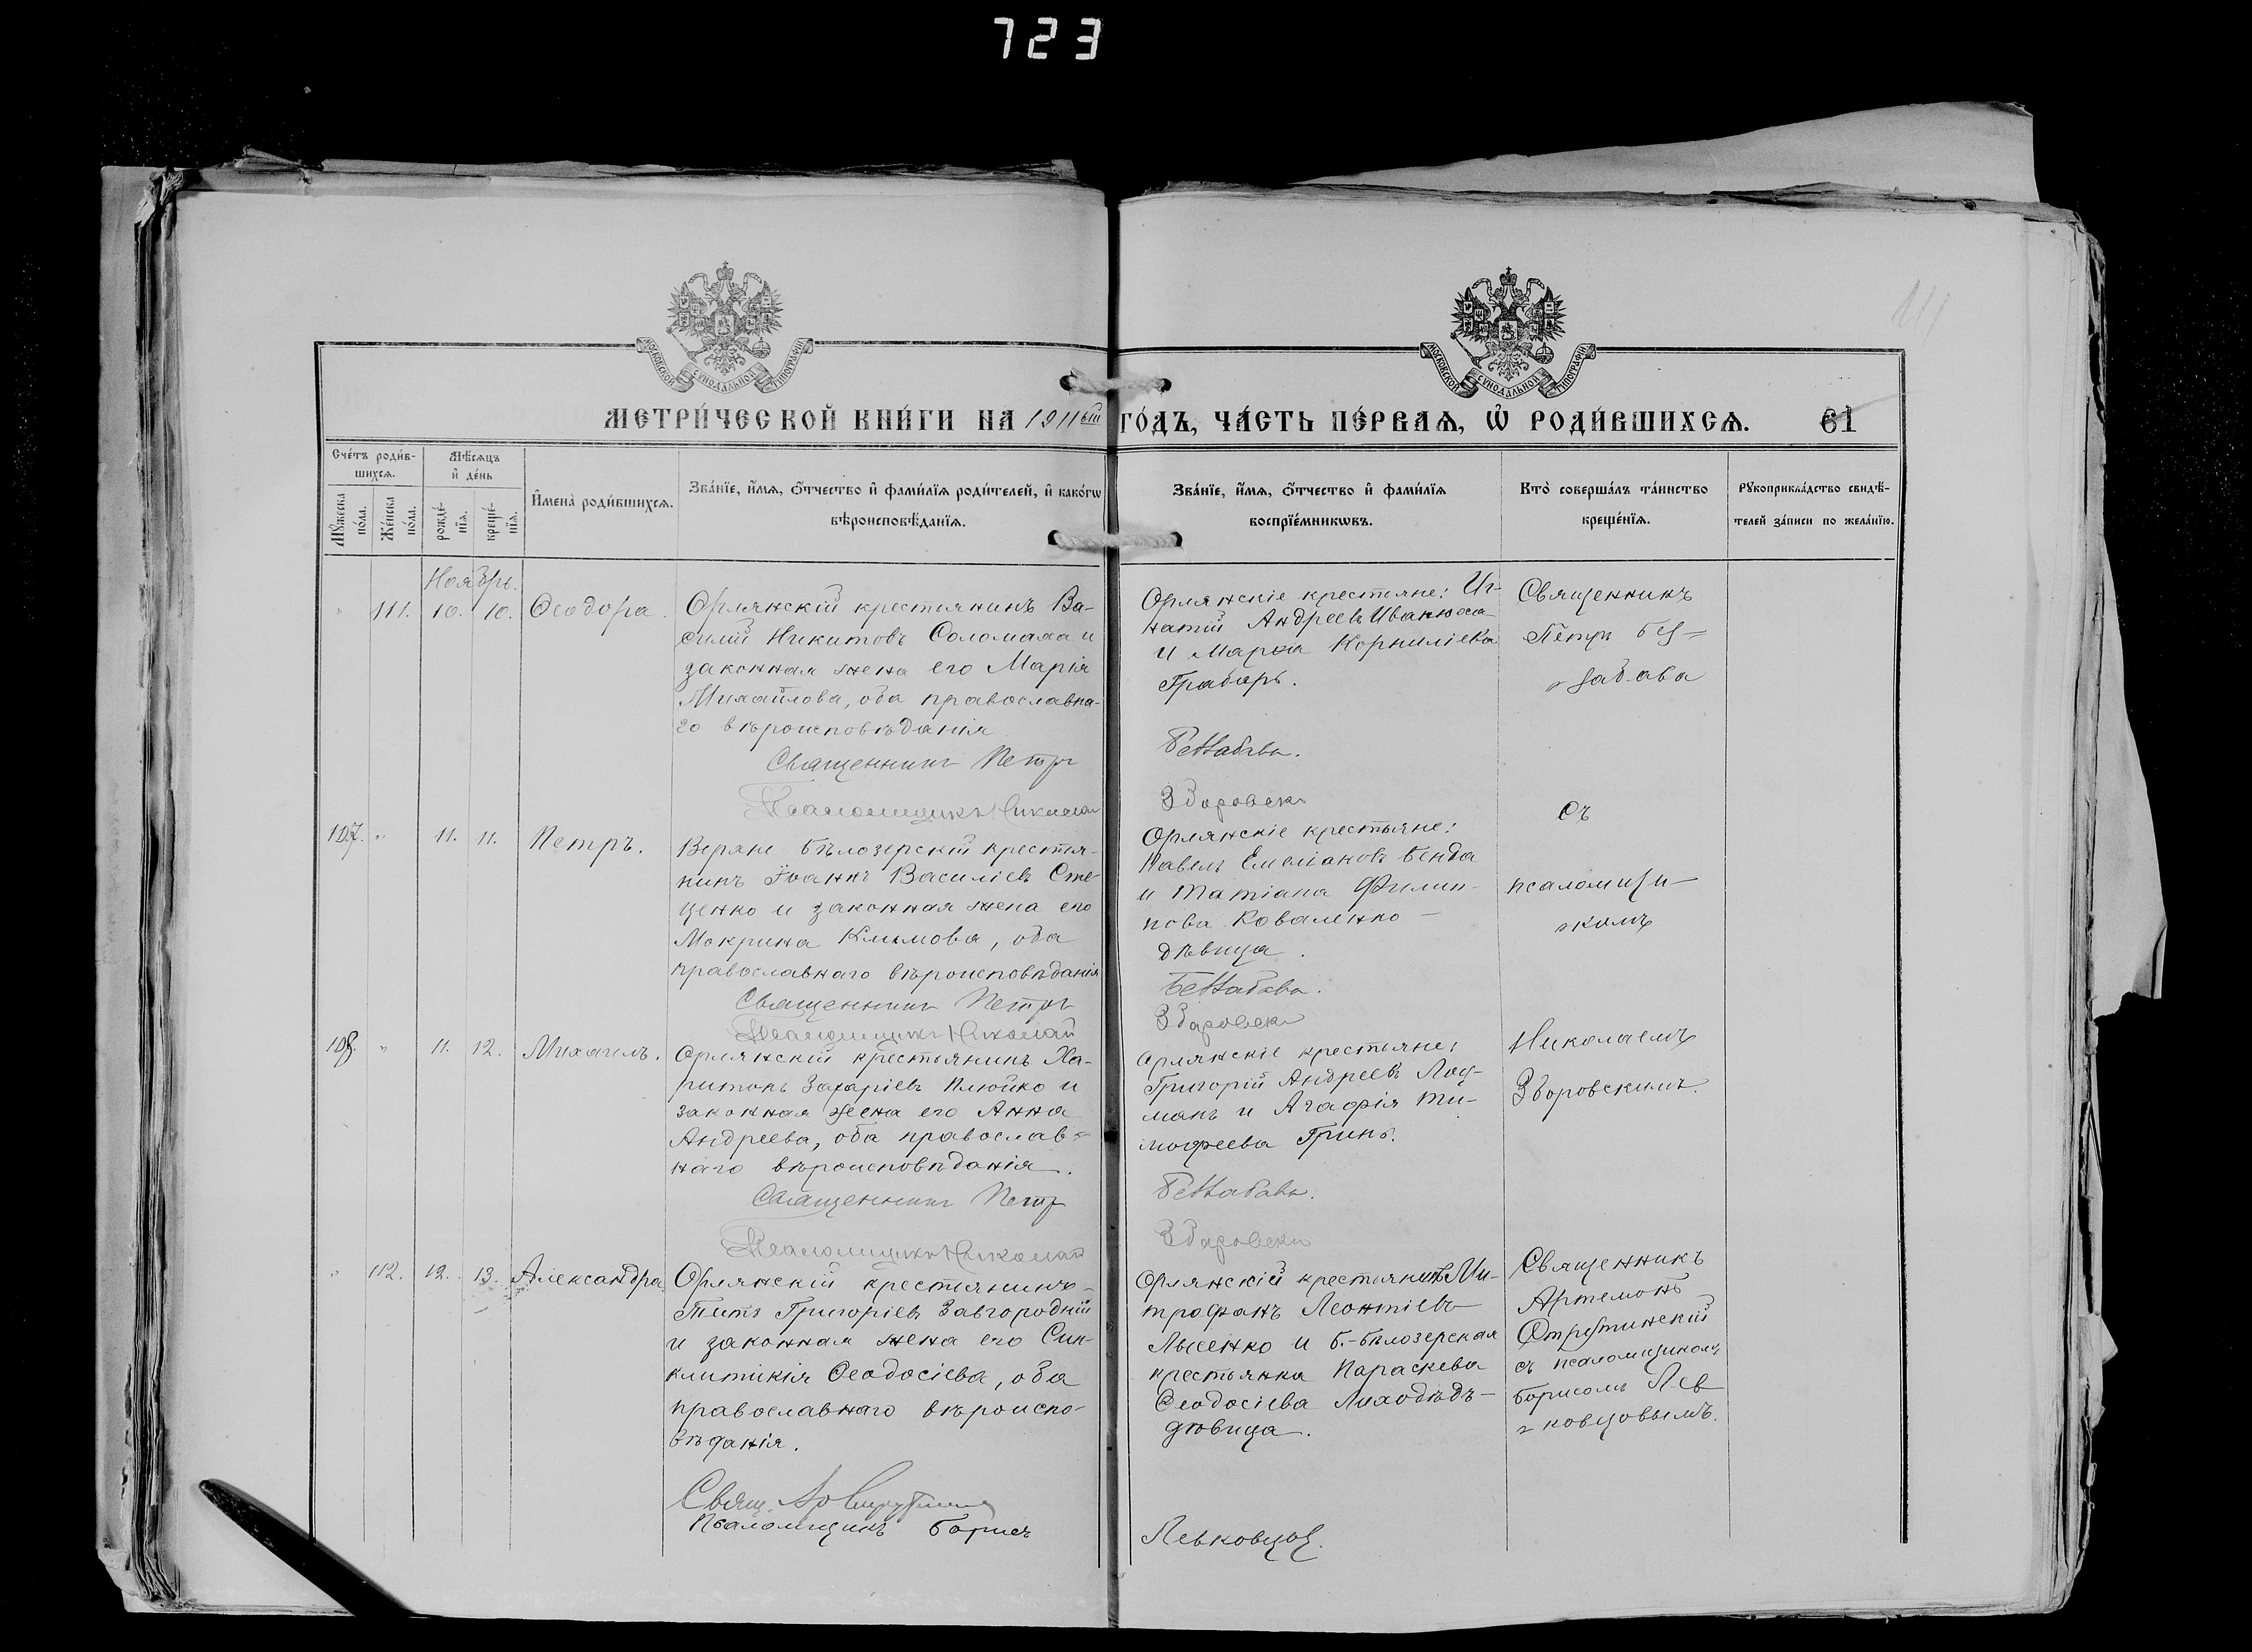 723
МОСКОВСКОЙ СУНОДАЛЬНОЙ ТИПОГРАФІИ
МОСКОВСКОЙ СУНОДАЛЬНОЙ ТИПОГРАФІИ
МЕТРИ́ЧЕСКОЙ КНИ́ГИ НА 1911ый ГО́ДЪ, ЧА́СТЬ ПЕ́РВАѦ, Ѡ҆ РОДИ́ВШИХСѦ. 61
Сче́тъ роди́в-
шихсѧ.
Мꙋ́жеска
по́ла.
Же́нска
по́ла.
Мѣ́сѧцъ
и҆ де́нь
рожде́-
нїѧ.
креще́-
нїѧ.
И҆мена̀ роди́вшихсѧ.
Зва́нїе, и҆́мѧ, ѻ҆́тчество и҆ фами́лїѧ роди́телей, и҆ како́гѡ
вѣроисповѣ́данїѧ.
Зва́нїе, и҆́мѧ, ѻ҆́тчество и҆ фами́лїѧ
воспрїе́мникѡвъ.
Кто̀ соверша́лъ та́инство
креще́нїѧ.
Рꙋкоприкла́дство свидѣ́-
телей за́писи по жела́нїю.
Ноябрь.
" 111. 10. 10. Ѳеодора.
Орлянскій крестьянинъ Ва-
силій Никитовъ Соломаха и
законная жена его Марія
Михайлова, оба православна-
го вѣроисповѣданія
Священникъ Петръ
Псаломщикъ Николай
Орлянскіе крестьяне: Иг-
натій Андреевъ
и Марѳа Корниліева
Грабарь.
Беззабава.
Зборовскій
Священникъ
Петръ Без=
=забава
съ
псаломщи-
=комъ
Николаемъ
Зборовскимъ.
107. " 11. 11. Петръ.
Верхне-Бѣлозерскій крестья-
нинъ Іоаннъ Василіевъ Сте-
ценко и законная жена его
Мокрина Климова, оба
православнаго вѣроисповѣданія
Священникъ Петръ
Псаломщикъ Николай
Орлянскіе крестьяне:
Павелъ Емеліановъ Бенда
и Татіана Филип-
пова Коваленко -
дѣвица.
Беззабава.
Зборовскій
108. " 11. 12. Михаилъ.
Орлянскій крестьянинъ Ха-
ритонъ Захаріевъ Плюйко и
законная жена его Анна
Андреева, оба православ=
наго вѣроисповѣданія.
Священникъ Петръ
Псаломщикъ Николай
Орлянскіе крестьяне:
Григорій Андреевъ Лоц-
манъ и Агафія Ти-
мофеева Гринь.
Беззабава.
Зборовскій
" 112. 12. 13. Александра
Орлянскій крестьянинъ-
Титъ Григоріевъ Завгородній
и законная жена его Син-
клитикія Ѳеодосіева, оба
православнаго вѣроиспо-
вѣданія.
Свящ.
Псаломщикъ Борисъ
Орлянскій крестьянинъ Ми-
трофанъ Леонтіевъ
Лысенко и Б.-Бѣлозерская
крестьянка Параскева
Ѳеодосіева Лиходѣдъ-
дѣвица.
Левковцовъ.
Священникъ
Артемонъ
съ псаломщикомъ
Борисомъ Лев
=ковцовымъ.